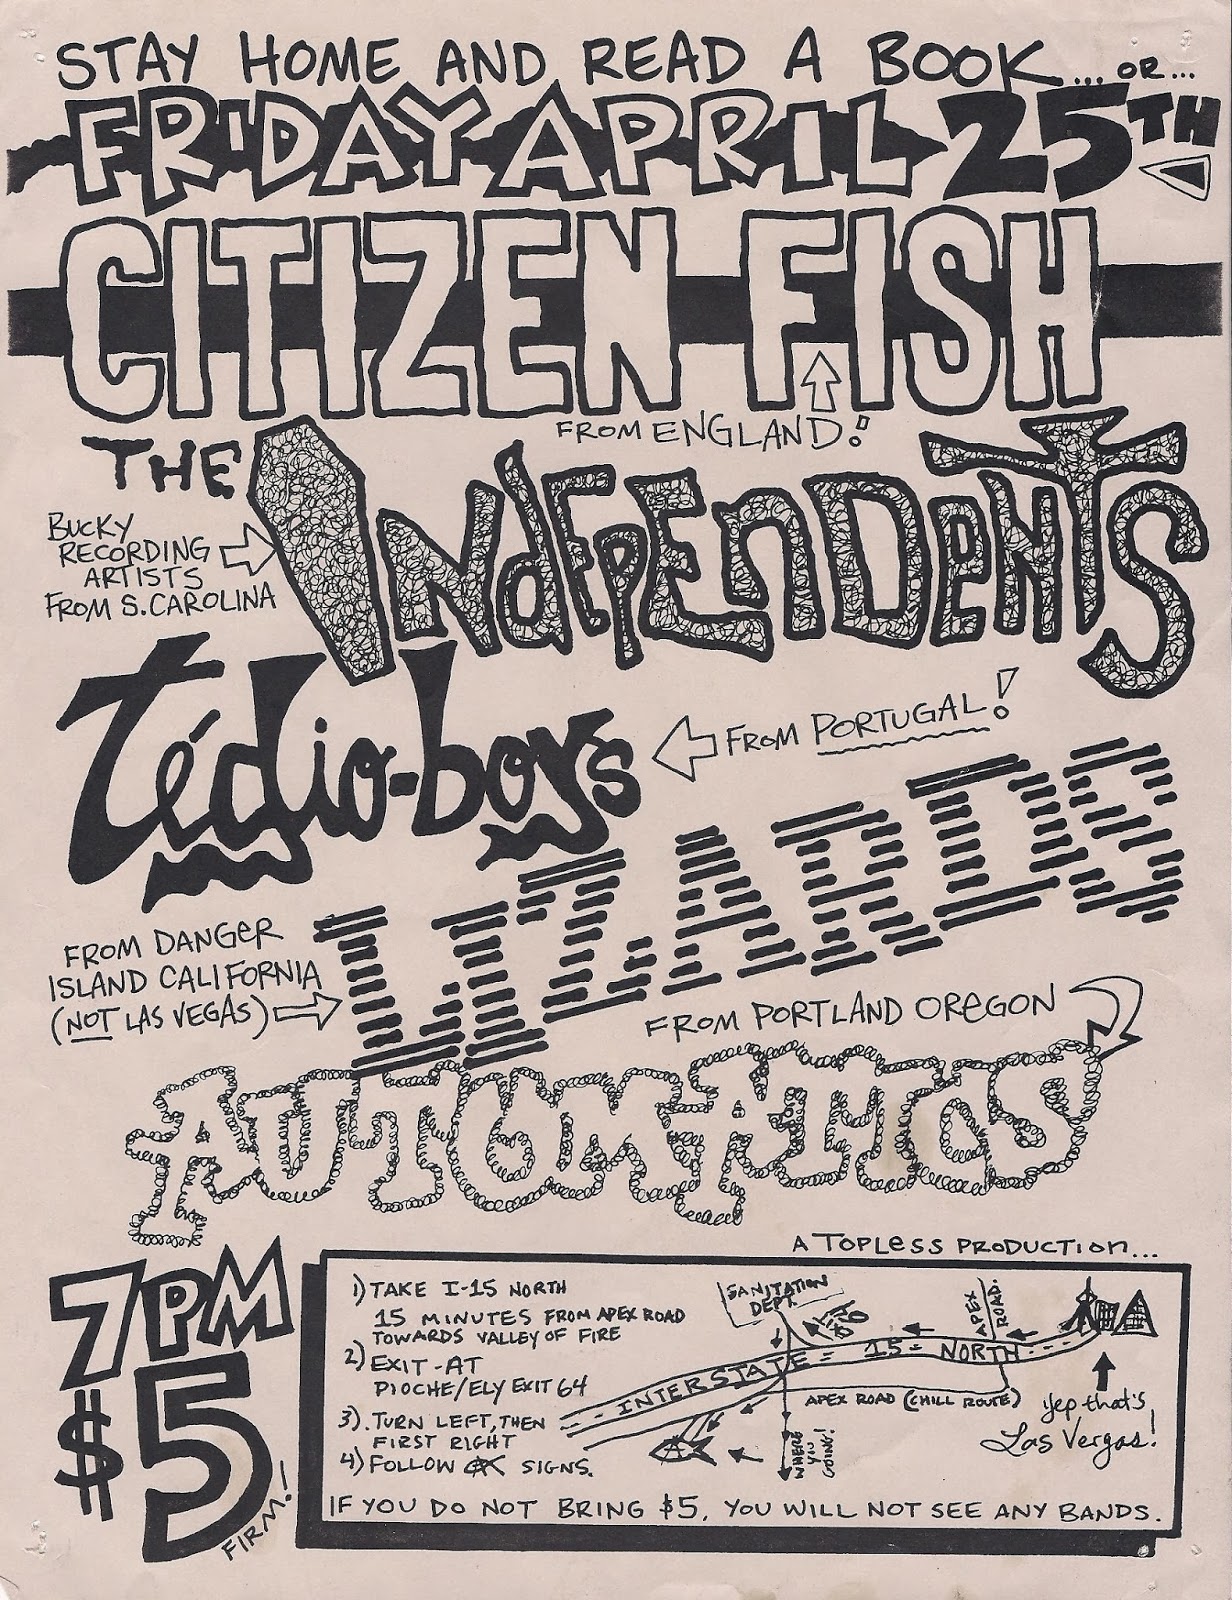 STAY HOME AND READ A BOOK... OR...
FRIDAY APRIL 25TH
CITIZEN FISH
FROM ENGLAND!
THE INDEPENDENTS
BUCKY
RECORDING
ARTISTS
FROM S. CAROLINA
tédio-boys
FROM PORTUGAL!
LIZARDS
FROM DANGER
ISLAND CALIFORNIA
(NOT LAS VEGAS)
FROM PORTLAND OREGON
AUTOMATONS
7PM
$5
FIRM!
A TOPLESS PRODUCTION...
1) TAKE I-15 NORTH
15 MINUTES FROM APEX ROAD
TOWARDS VALLEY OF FIRE
2) EXIT-AT
PIOCHE/ELY EXIT 64
3) TURN LEFT, THEN
FIRST RIGHT
4) FOLLOW SIGNS.
SANITATION
DEPT.
APEX
ROAD.
INTERSTATE 15 NORTH
APEX ROAD (CHILL ROUTE)
WHERE
YOU
GOING!
yep that's
Las Vergas!
IF YOU DO NOT BRING $5, YOU WILL NOT SEE ANY BANDS.